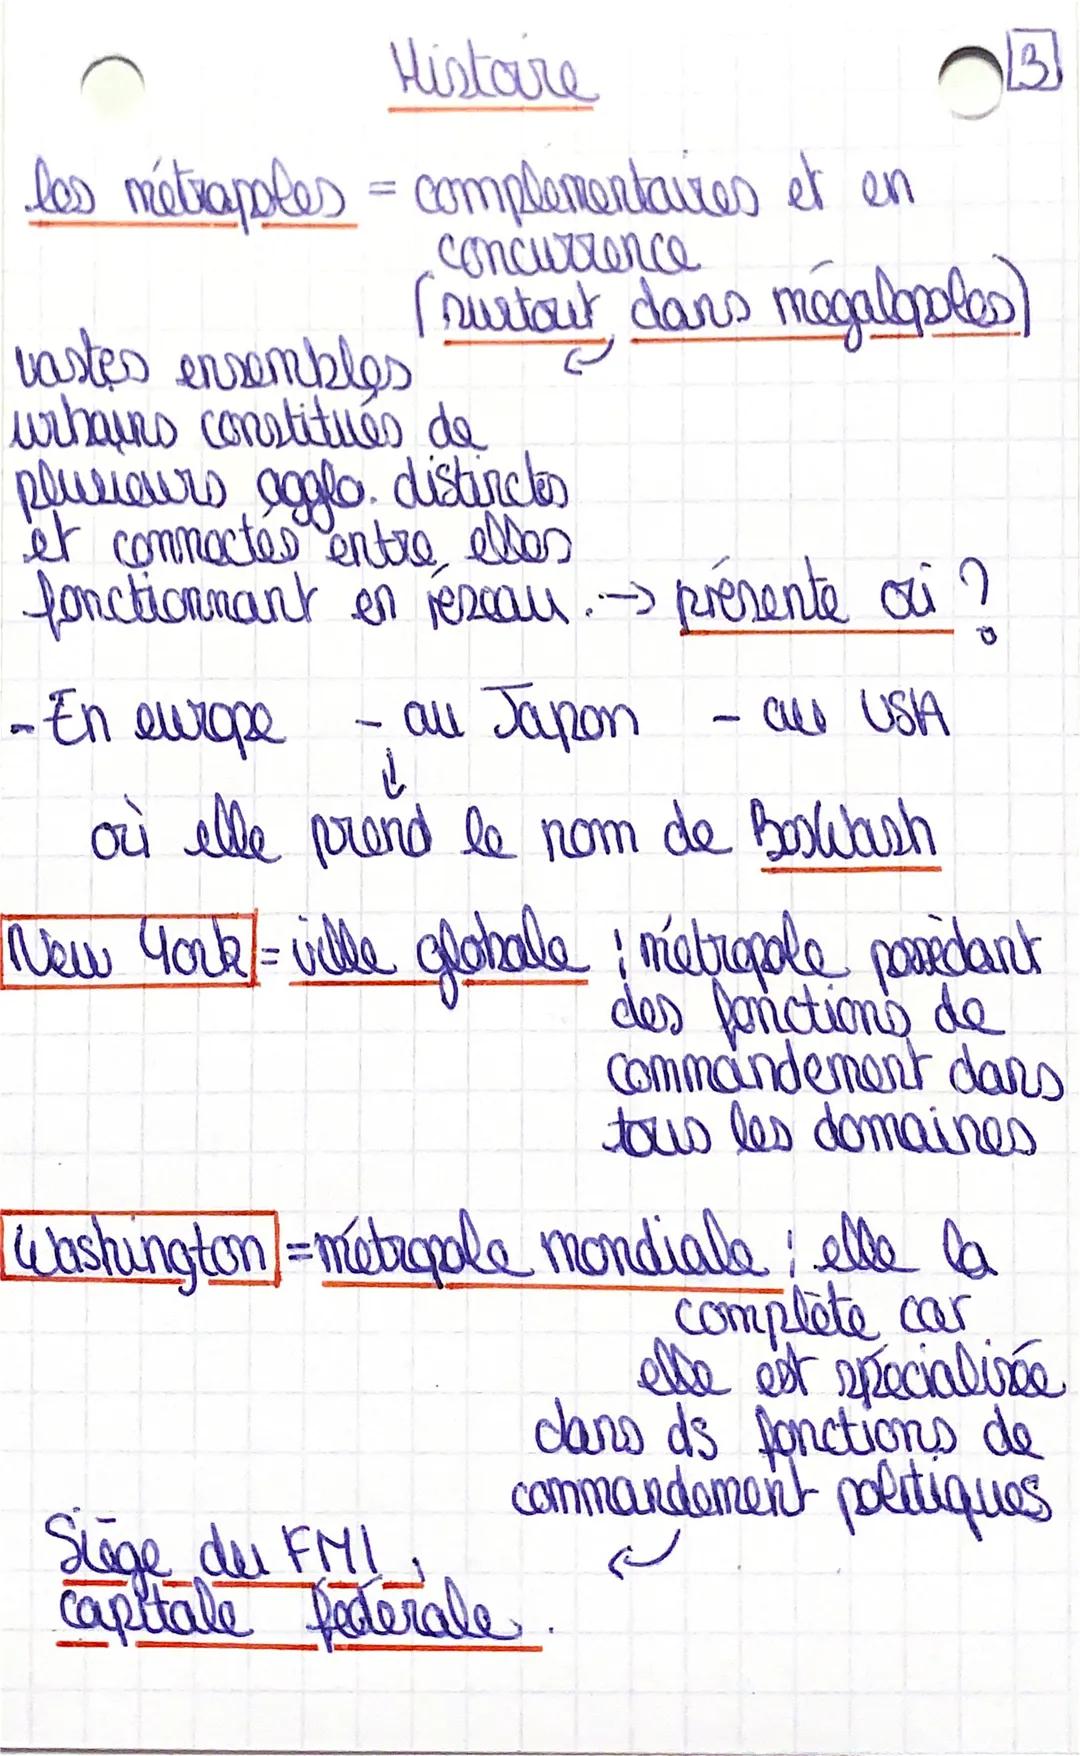 Histoire
3
les métropoles = complémentaires et en
concurrence
(surtout dans mégalopoles)
vastes ensembles
urbains constitués de
plusieurs agglo. distinctes
et connectés entre elles
fonctionnant en réseau. → présente où ?
- En europe - au Japon - au USA
↓
où elle prend le nom de BosWash
New York = ville globale : métropole possédant
des fonctions de
commandement dans
tous les domaines
Washington = métropole mondiale : elle la
complète car
elle est spécialisée
dans ds fonctions de
commandement politiques
Siège du FMI,
capitale fédérale.